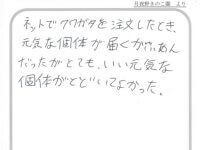 月夜野きのこ園 より
ネットでクワガタを注文したとき、
元気な個体が届くかふあん
だったがとても、いい元気な
個体がとどいてよかった。